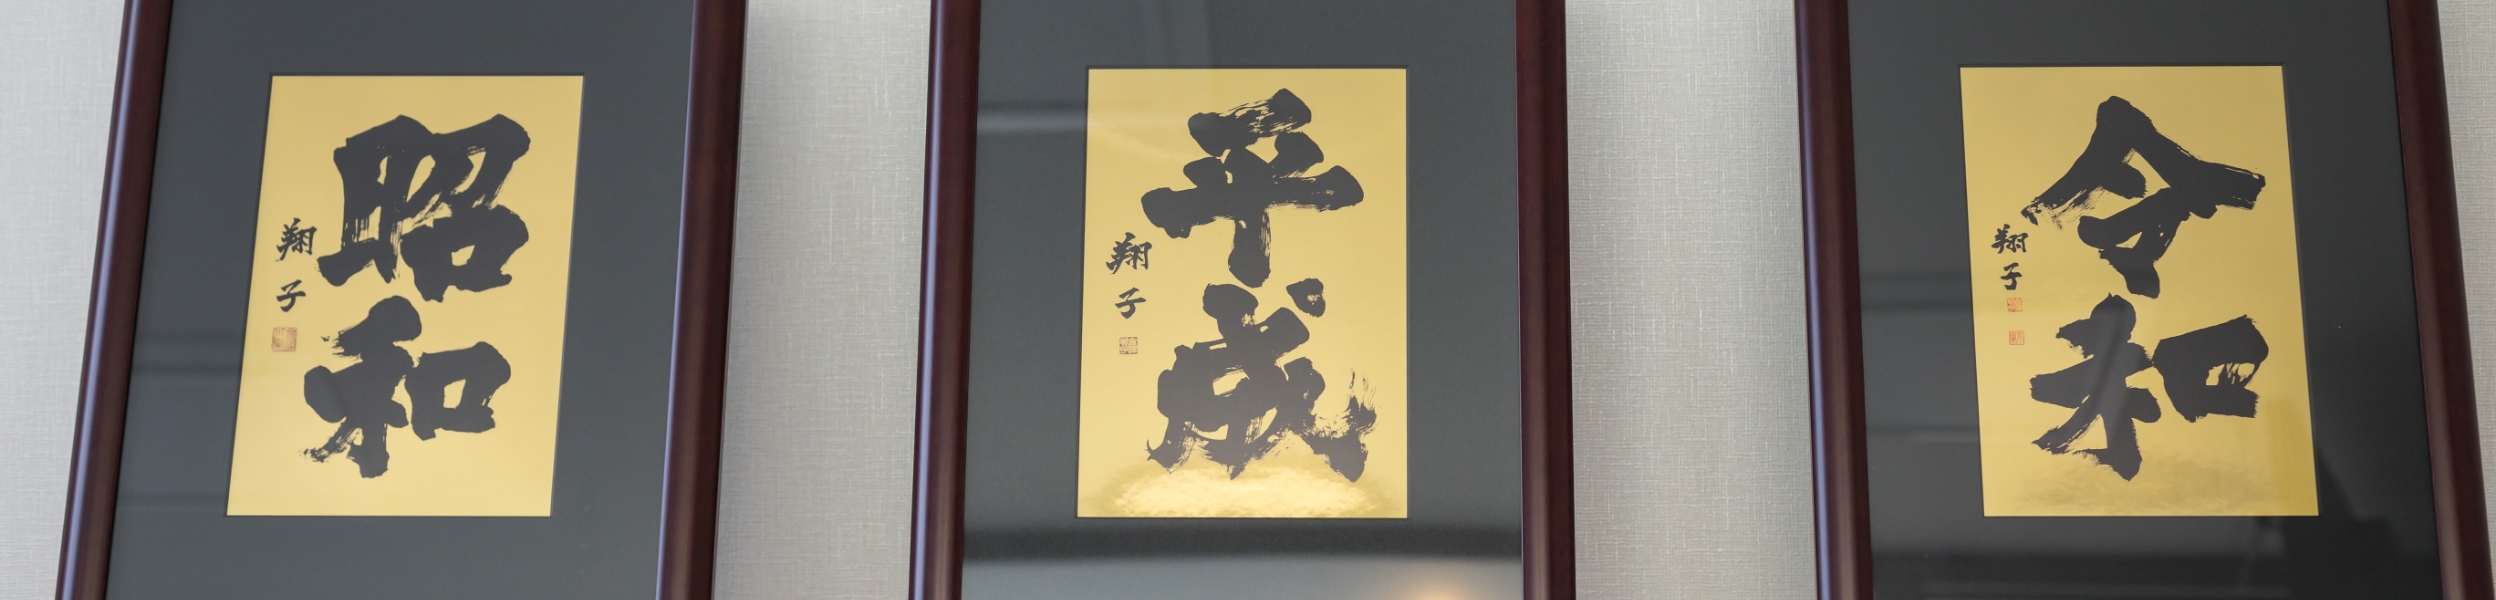 昭和
翔子
平成
翔子
令和
翔子